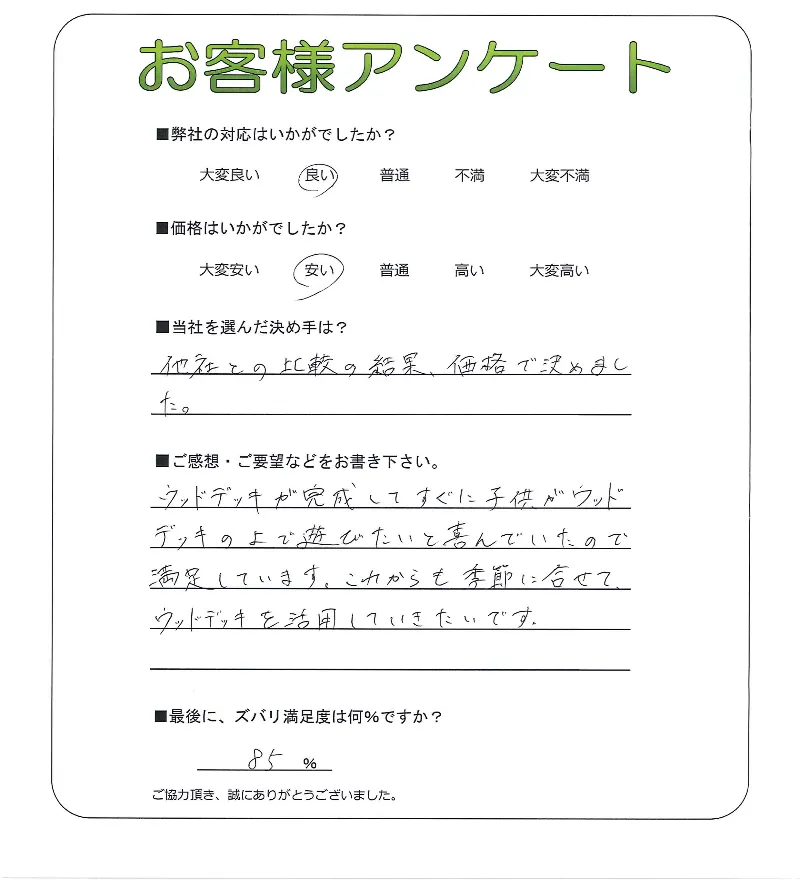 お客様アンケート
■弊社の対応はいかがでしたか？
大変良い 良い 普通 不満 大変不満
■価格はいかがでしたか？
大変安い 安い 普通 高い 大変高い
■当社を選んだ決め手は？
他社との比較の結果、価格で決めまし
た。
■ご感想・ご要望などをお書き下さい。
ウッドデッキが完成してすぐに子供がウッド
デッキの上で遊びたいと喜んでいたので
満足しています。これからも季節に合せて、
ウッドデッキを活用していきたいです。
■最後に、ズバリ満足度は何%ですか？
85 %
ご協力頂き、誠にありがとうございました。